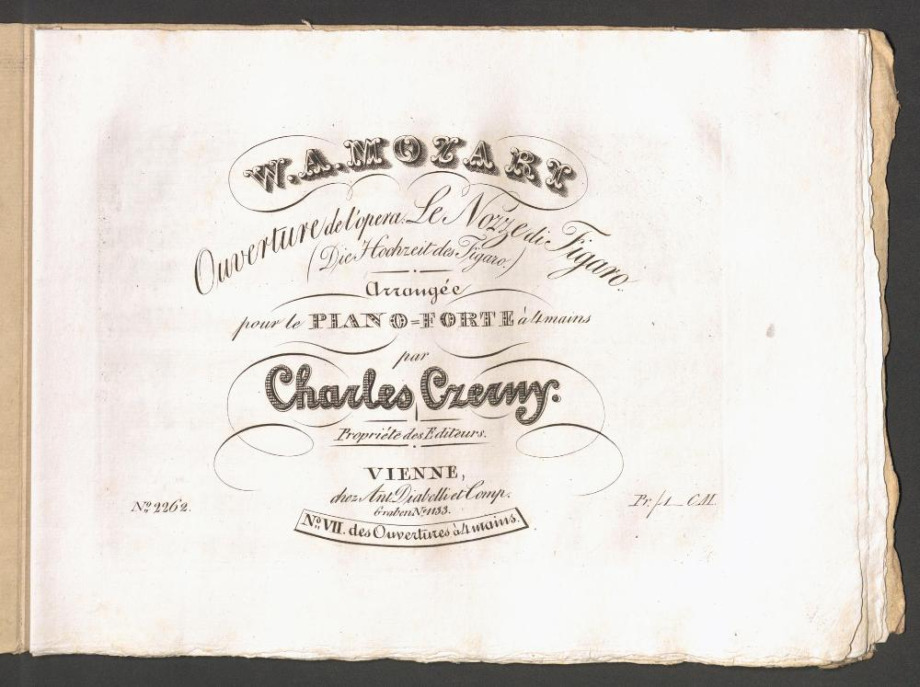 W.A.MOZART
Ouverture de l'opera: Le Nozze di Figaro.
(Die Hochzeit des Figaro.)
Arrangée
pour le PIANO=FORTE à 4 mains
par
Charles Czerny.
Propriété des Editeurs.
VIENNE,
chez Ant. Diabelli et Comp.
Graben No. 1133.
No. 2262.
Pr. f 1_ C.M.
No. VII. des Ouvertures à 4 mains.